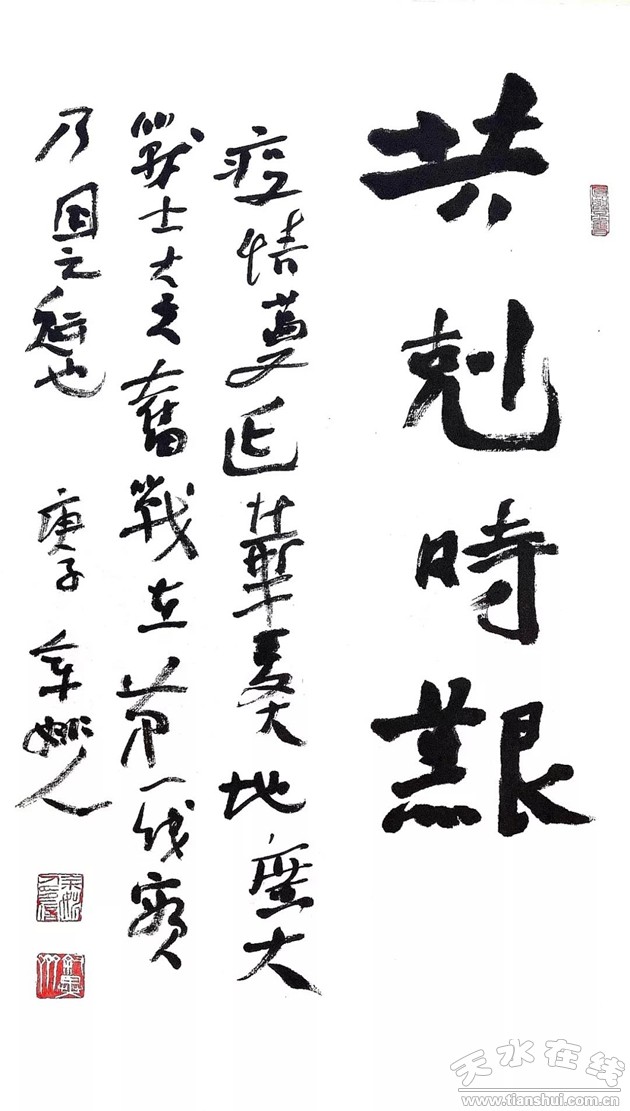 共剋時艱
疫情蔓延華夏大地廣大
戰士大夫奮戰在第一线實
乃国之幸也 庚子年姚人
天水在线
www.tianshui.com.cn